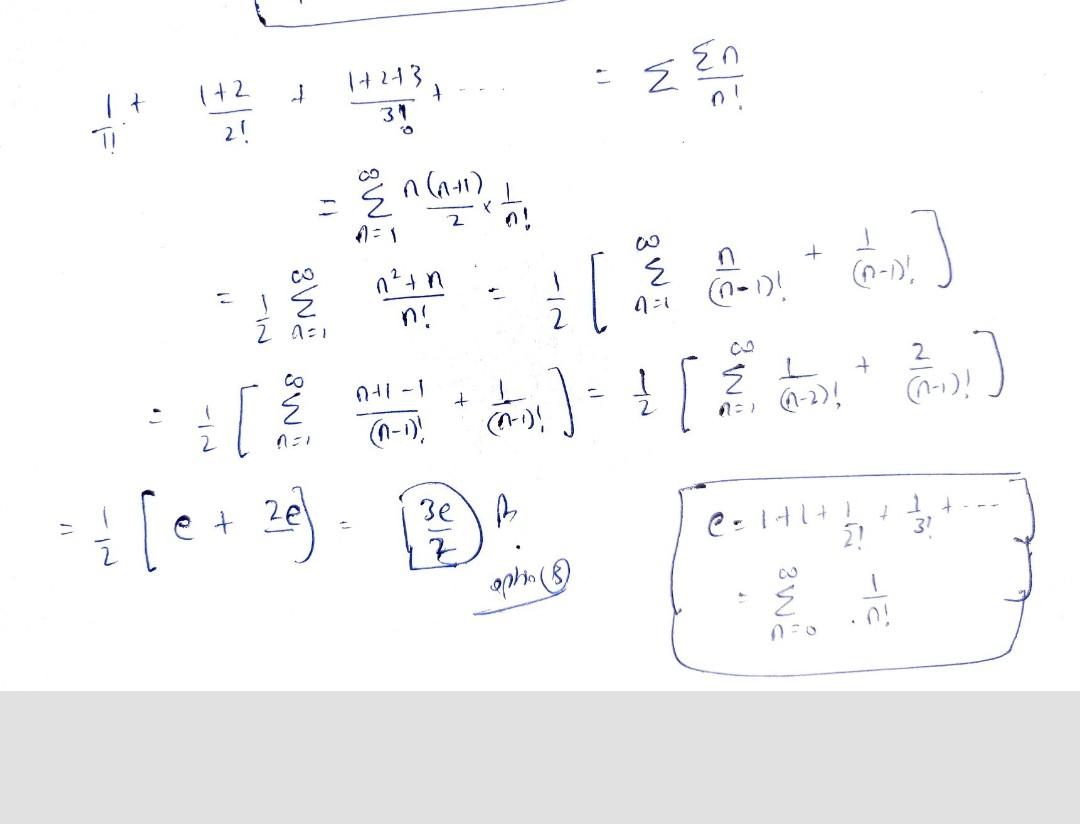 1/1! + (1+2)/2! + (1+2+3)/3! + ---- = Σ Σn/n!
= Σ_{n=1}^{∞} n(n+1)/2 × 1/n!
= 1/2 Σ_{n=1}^{∞} (n²+n)/n! = 1/2 [ Σ_{n=1}^{∞} n/(n-1)! + 1/(n-1)! ]
= 1/2 [ Σ_{n=1}^{∞} (n+1-1)/(n-1)! + 1/(n-1)! ] = 1/2 [ Σ_{n=1}^{∞} 1/(n-2)! + 2/(n-1)! ]
= 1/2 [ e + 2e ] = 3e/2
option (B)
e = 1+1+ 1/2! + 1/3! + ---
= Σ_{n=0}^{∞} . 1/n!